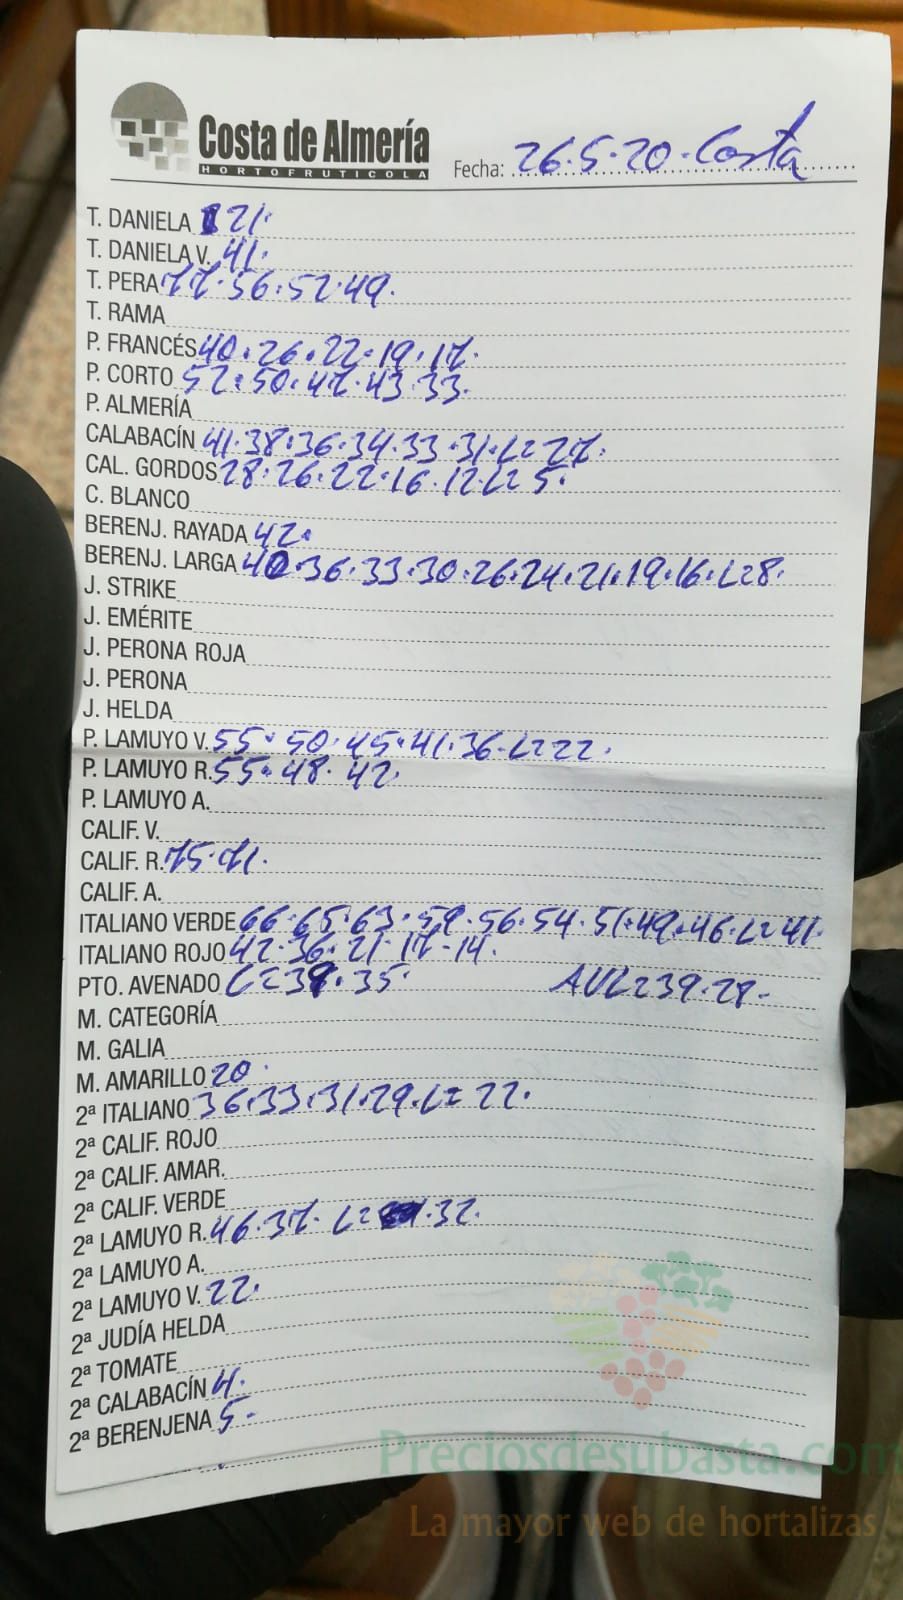 Costa de Almería
HORTOFRUTICOLA
Fecha: 26.5.20.Costa
T. DANIELA 21.
T. DANIELA V. 41.
T. PERA 77.56.52.49.
T. RAMA
P. FRANCÉS 40.26.22.19.17.
P. CORTO 52.50.47.43.33.
P. ALMERÍA
CALABACÍN 41.38.36.34.33.31.L=27.
CAL. GORDOS 28.26.22.16.12.L=5.
C. BLANCO
BERENJ. RAYADA 42.
BERENJ. LARGA 40.36.33.30.26.24.21.19.16.L=8.
J. STRIKE
J. EMÉRITE
J. PERONA ROJA
J. PERONA
J. HELDA
P. LAMUYO V. 55.50.45.41.36.L=22.
P. LAMUYO R. 55.48.42.
P. LAMUYO A.
CALIF. V.
CALIF. R. 75.71.
CALIF. A.
ITALIANO VERDE 66.65.63.59.56.54.51.49.46.L=41.
ITALIANO ROJO 42.36.21.17.14.
PTO. AVENADO L=39.35. AVL=39.29.
M. CATEGORÍA
M. GALIA
M. AMARILLO 20.
2ª ITALIANO 36.33.31.29.L=22.
2ª CALIF. ROJO
2ª CALIF. AMAR.
2ª CALIF. VERDE
2ª LAMUYO R. 46.37. L= .32.
2ª LAMUYO A.
2ª LAMUYO V. 22.
2ª JUDÍA HELDA
2ª TOMATE
2ª CALABACÍN 4.
2ª BERENJENA 5.
Preciosdesubasta.com
La mayor web de hortalizas